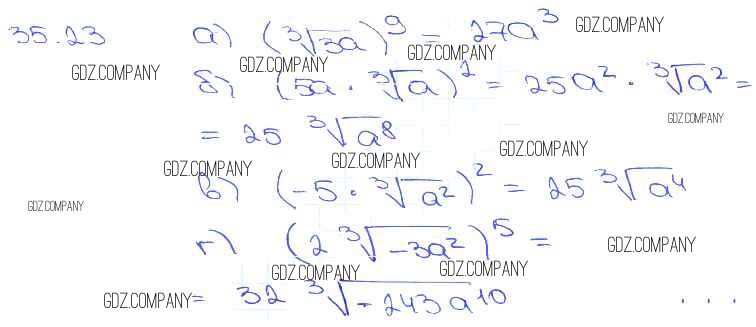 35.23 а) (∛3a)⁹ = 27a³ GDZ.COMPANY
GDZ.COMPANY GDZ.COMPANY GDZ.COMPANY
б) (5a · ∛a)² = 25a² · ∛a² =
GDZ.COMPANY
= 25 ∛a⁸
GDZ.COMPANY GDZ.COMPANY GDZ.COMPANY
в) (-5 · ∛a²)² = 25 ∛a⁴
GDZ.COMPANY
г) (2 ∛-3a²)⁵ = GDZ.COMPANY
GDZ.COMPANY GDZ.COMPANY
GDZ.COMPANY = 32 ∛-243a¹⁰ ...